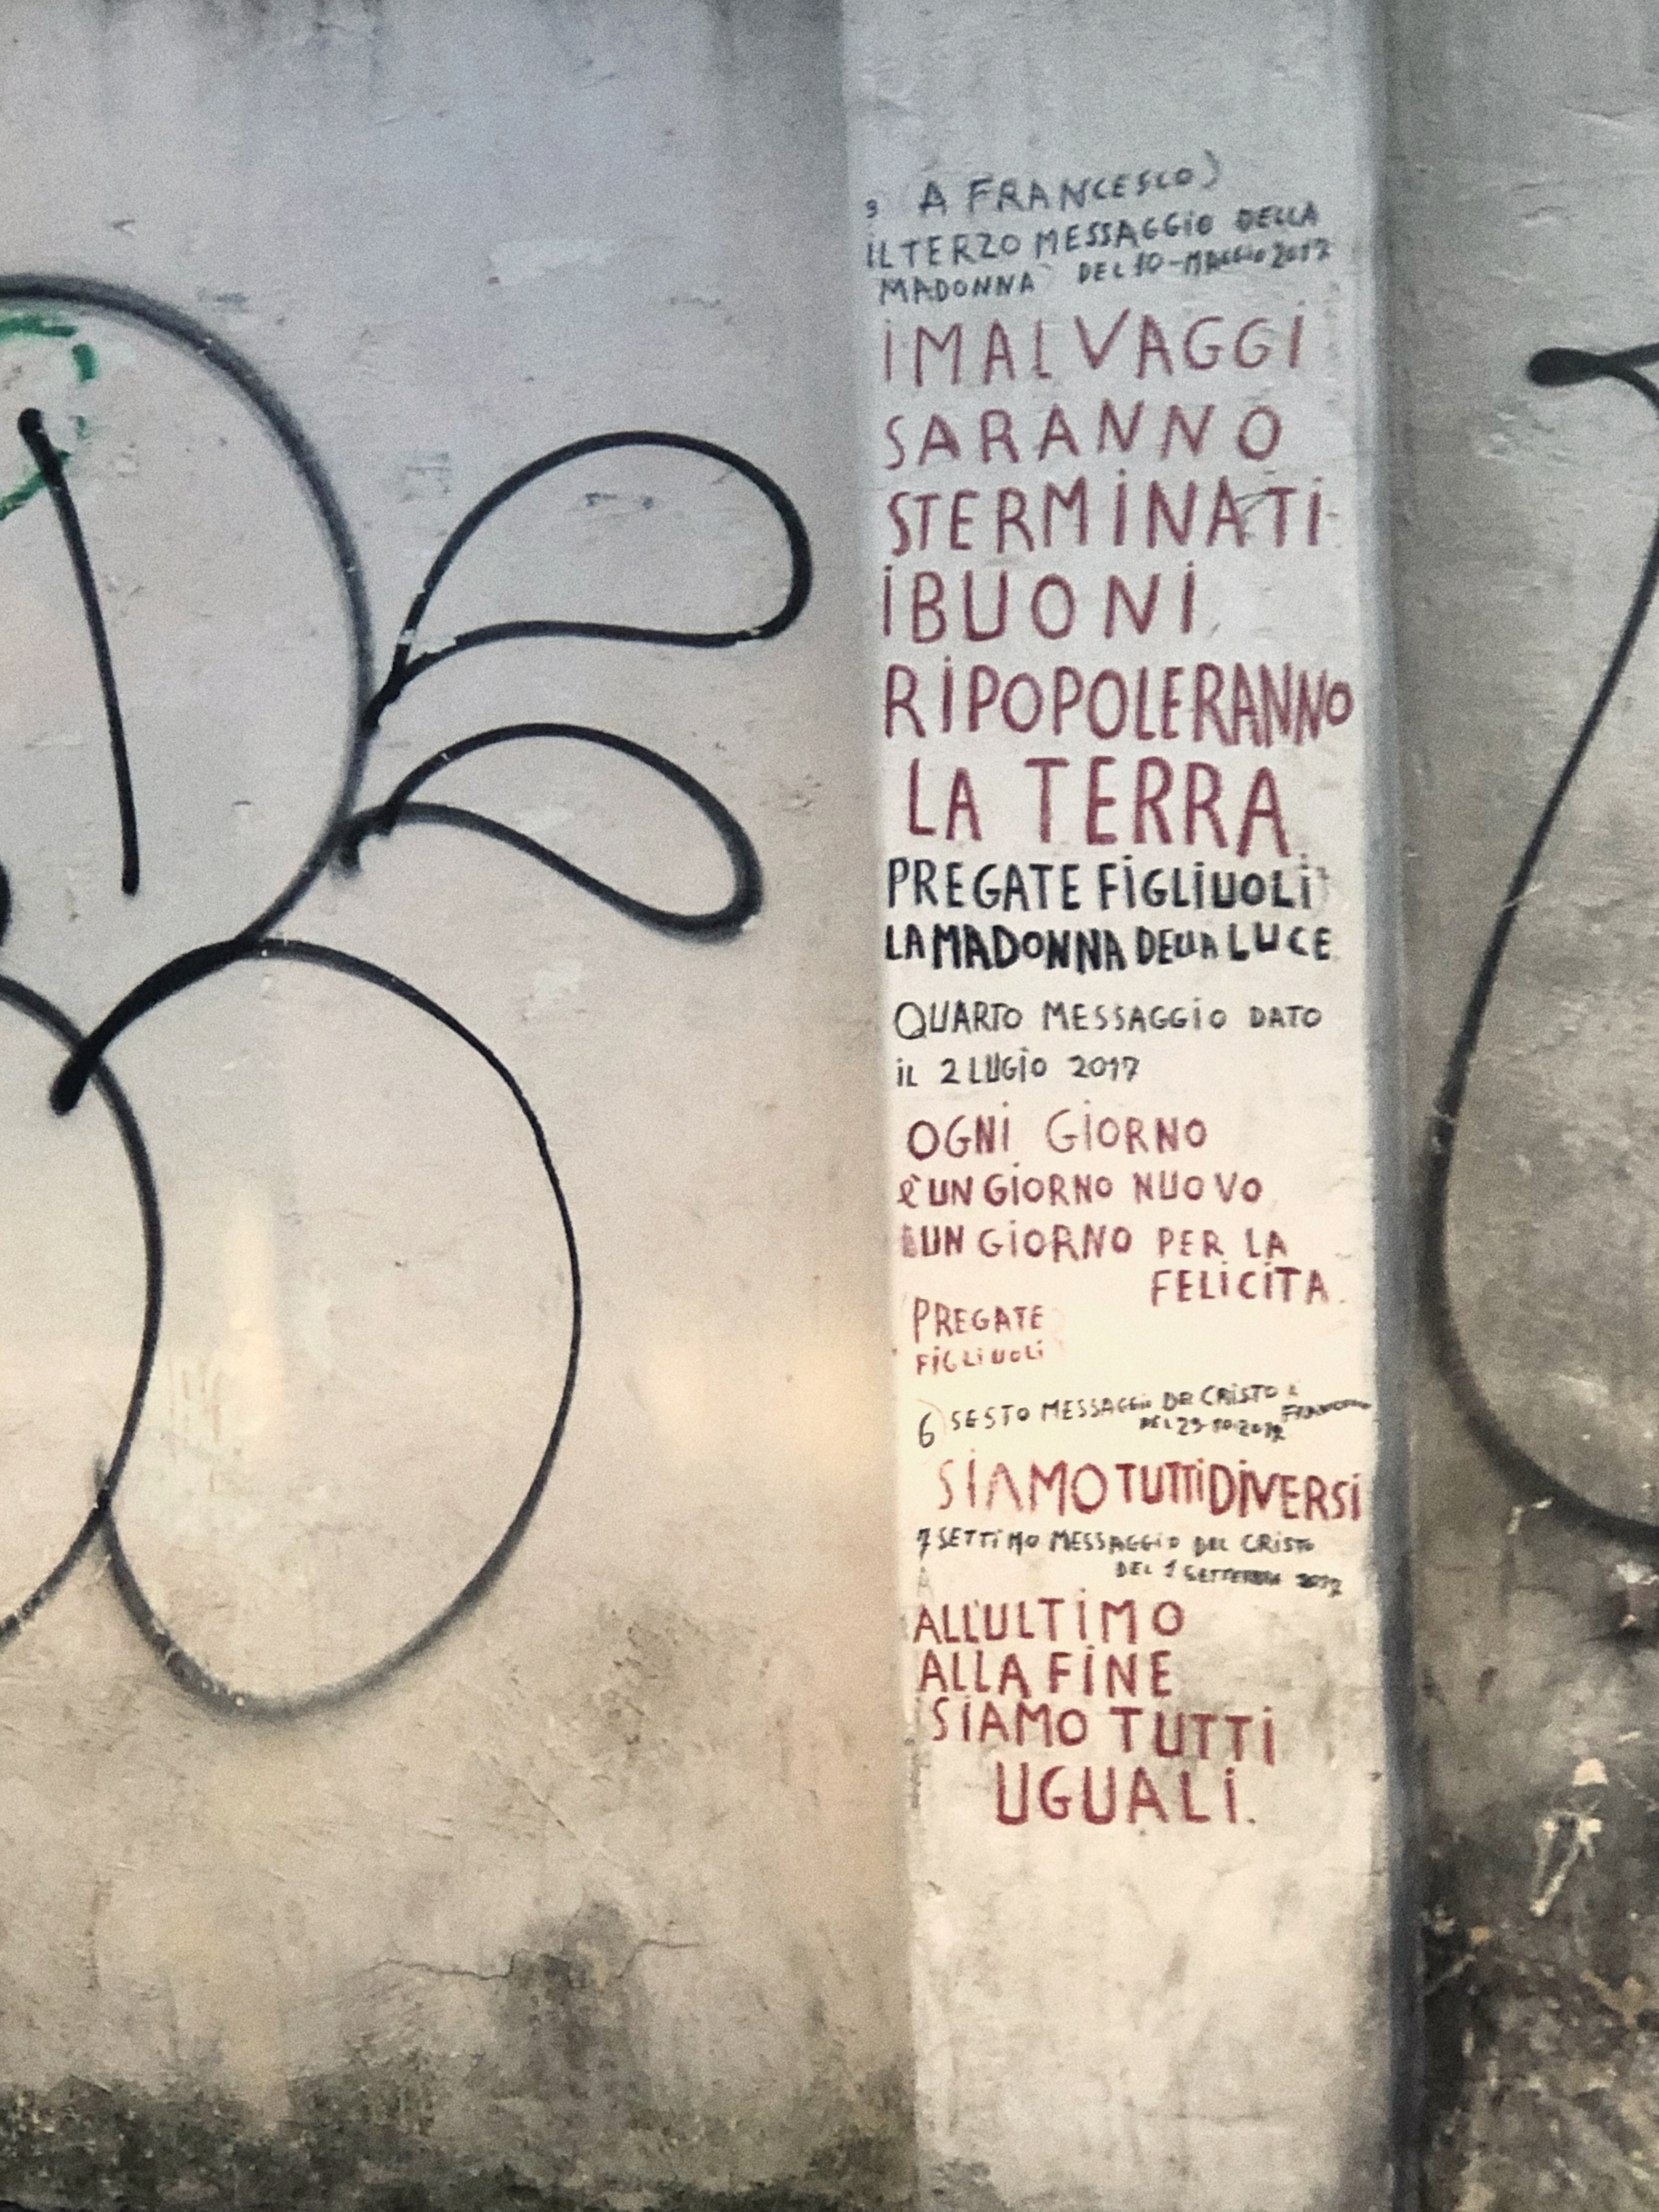 3 A FRANCESCO)
IL TERZO MESSAGGIO DELLA
MADONNA DEL 10-MAGGIO 2017
I MALVAGGI
SARANNO
STERMINATI
I BUONI
RIPOPOLERANNO
LA TERRA
PREGATE FIGLIUOLI
LA MADONNA DELLA LUCE
QUARTO MESSAGGIO DATO
IL 2 LUGIO 2017
OGNI GIORNO
è UN GIORNO NUOVO
UN GIORNO PER LA
FELICITA.
PREGATE
FIGLIUOLI
6 SESTO MESSAGGIO CRISTO
SIAMO TUTTI DIVERSI
7 SETTIMO MESSAGGIO DEL CRISTO
DEL 1 SETTEMBRE
ALL'ULTIMO
ALLA FINE
SIAMO TUTTI
UGUALI.